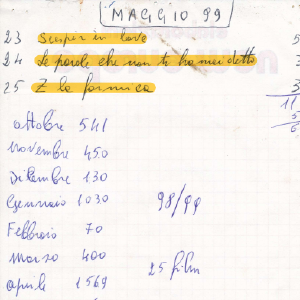 MAGGIO 99
23 Susper in love 5
24 Le parole che non ti ho mai detto
25 Z la formica 3
11
ottobre 541 5
novembre 450 6
Dicembre 130
Gennaio 1030 98/99
Febbraio 70
Marzo 400 25 film
aprile 1569